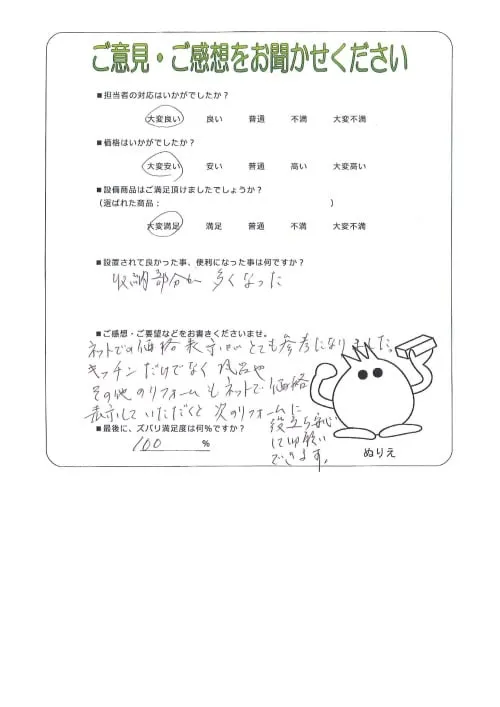 ご意見・ご感想をお聞かせください
■担当者の対応はいかがでしたか?
大変良い 良い 普通 不満 大変不満
■価格はいかがでしたか?
大変安い 安い 普通 高い 大変高い
■設備商品はご満足頂けましたでしょうか?
(選ばれた商品: )
大変満足 満足 普通 不満 大変不満
■設置されて良かった事、便利になった事は何ですか?
収納部分が多くなった
■ご感想・ご要望などをお書きくださいませ。
ネットでの価格表示がとても参考になりました。
キッチンだけでなく風呂や
その他のリフォームもネットで価格
表示していただくと次のリフォームに
役立ち安心
してお願い
できます。
■最後に、ズバリ満足度は何%ですか?
100 %
ぬりえ